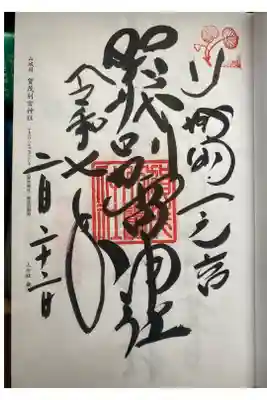 山城國一之宮
賀茂別雷神社
令和七年
二月二十二日
賀茂別雷神社